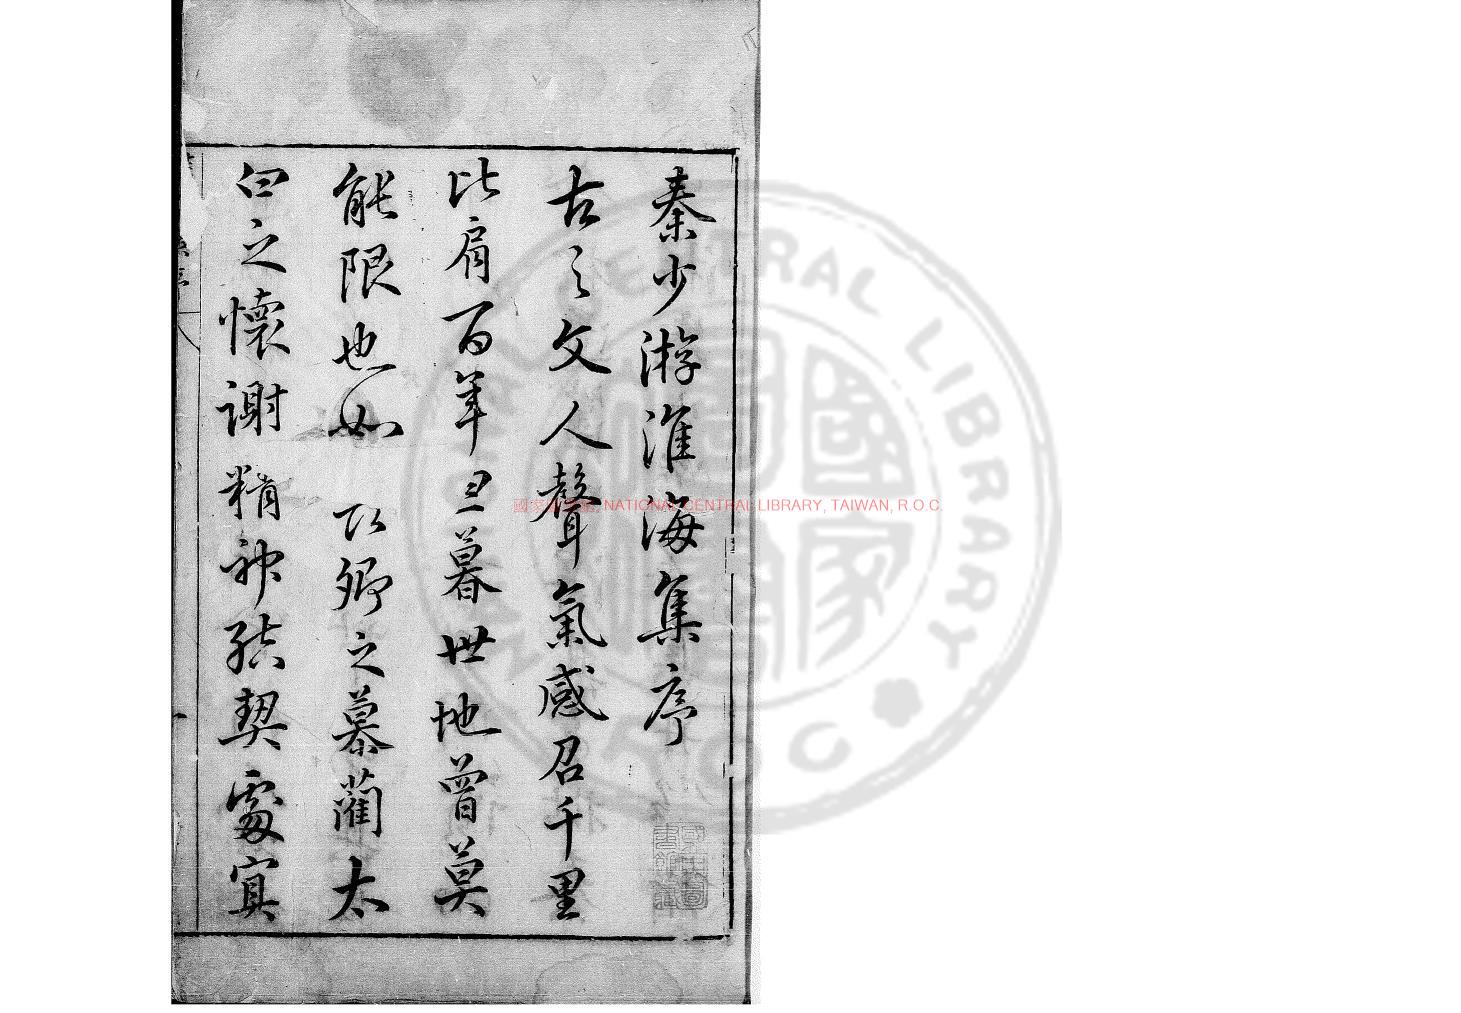 秦少游淮海集序
古之文人聲氣感召千里
比肩百年旦暮世地曾莫
能限也如長卿之慕藺太
白之懷謝精神結契處㝠
國家圖書館, NATIONAL CENTRAL LIBRARY, TAIWAN, R.O.C.
NATIONAL CENTRAL LIBRARY R.O.C.